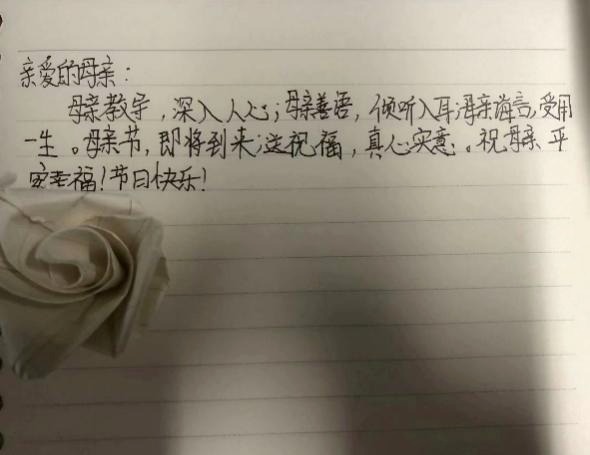 亲爱的母亲：
母亲教导，深入人心；母亲善语，倾听入耳；母亲诲言，受用
一生。母亲节，即将到来；送祝福，真心实意。祝母亲平
安幸福！节日快乐！